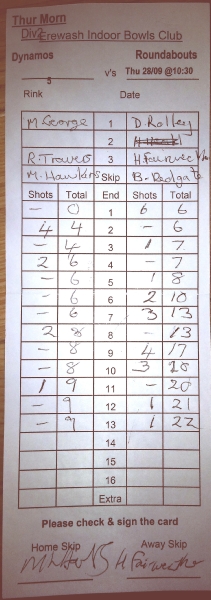 Thur Morn
Div2 Erewash Indoor Bowls Club
Dynamos Roundabouts
5 v's Thu 28/09 @10:30
Rink Date
M. George 1 D. Rolley
2
R. Travers 3 H. Fairweather
M. Hawkins Skip B. Radgate
Shots Total End Shots Total
- 0 1 6 6
4 4 2 - 6
- 4 3 1 7
2 6 4 - 7
- 6 5 1 8
- 6 6 2 10
- 6 7 3 13
2 8 8 - 13
- 8 9 4 17
- 8 10 3 20
1 9 11 - 20
- 9 12 1 21
- 9 13 1 22
14
15
16
Extra
Please check & sign the card
Home Skip Away Skip
H Fairweather